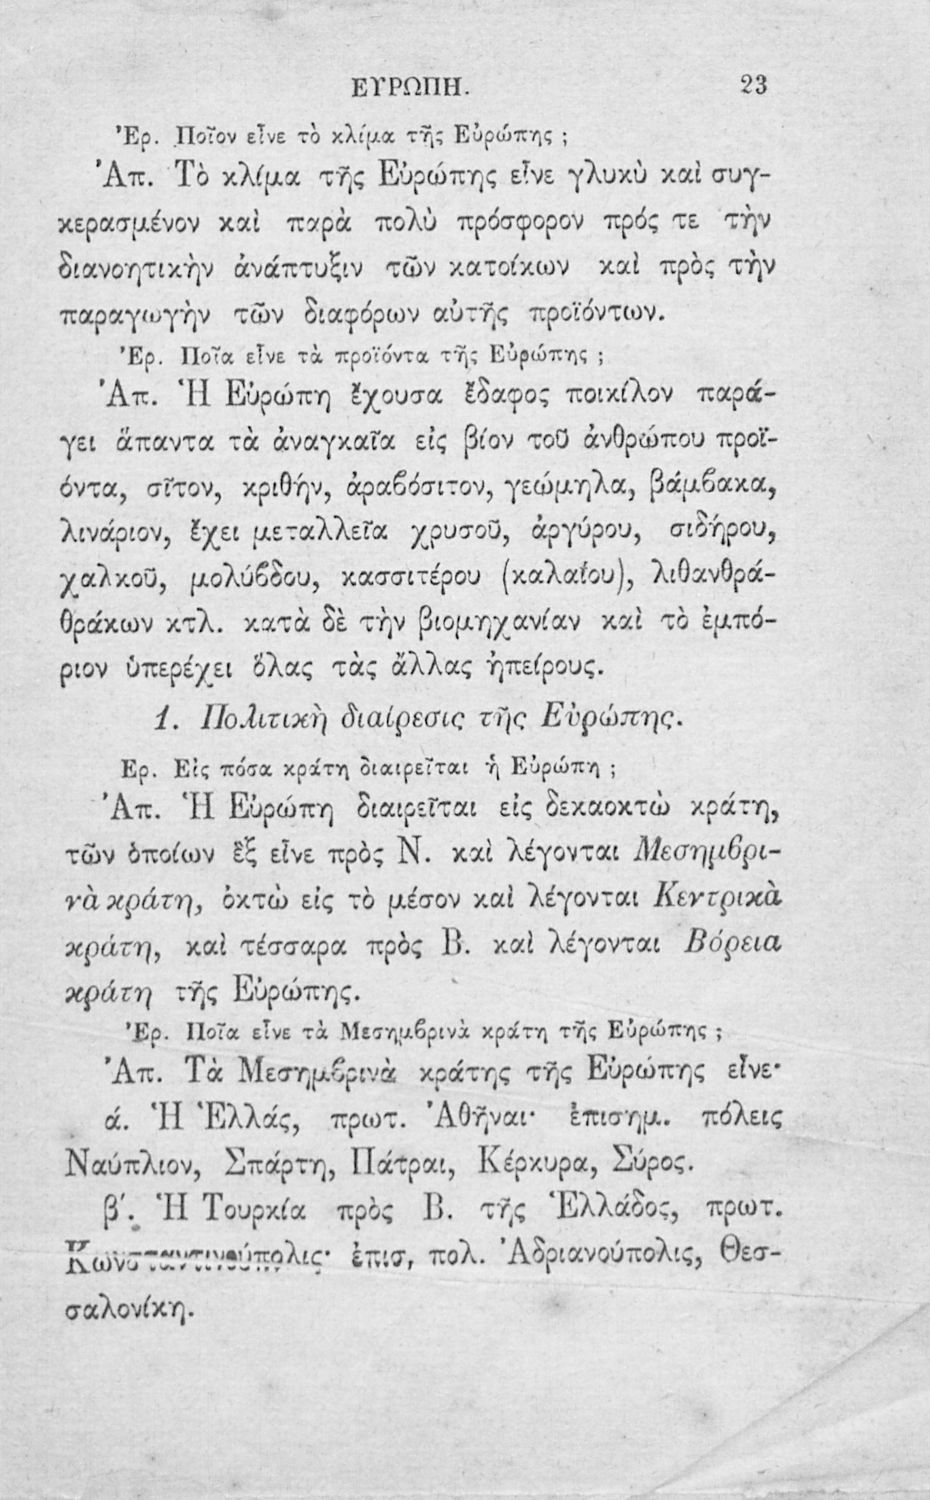 ΕΥΡΩΠΗ. 23
Ἐρ. Ποῖον εἶνε τὸ κλίμα τῆς Εὐρώπης ;
Ἀπ. Τὸ κλίμα τῆς Εὐρώπης εἶνε γλυκὺ καὶ συγ-
κερασμένον καὶ παρὰ πολὺ πρόσφορον πρός τε τὴν
διανοητικὴν ἀνάπτυξιν τῶν κατοίκων καὶ πρὸς τὴν
παραγωγὴν τῶν διαφόρων αὐτῆς προϊόντων.
Ἐρ. Ποῖα εἶνε τὰ προϊόντα τῆς Εὐρώπης ;
Ἀπ. Ἡ Εὐρώπη ἔχουσα ἔδαφος ποικίλον παρά-
γει ἅπαντα τὰ ἀναγκαῖα εἰς βίον τοῦ ἀνθρώπου προϊ-
όντα, σῖτον, κριθήν, ἀραϐόσιτον, γεώμηλα, βάμϐακα,
λινάριον, ἔχει μεταλλεῖα χρυσοῦ, ἀργύρου, σιδήρου,
χαλκοῦ, μολύϐδου, κασσιτέρου (καλαΐου), λιθανθρά-
θράκων κτλ. κατὰ δὲ τὴν βιομηχανίαν καὶ τὸ ἐμπό-
ριον ὑπερέχει ὅλας τὰς ἄλλας ἠπείρους.
1. Πολιτικὴ διαίρεσις τῆς Εὐρώπης.
Ερ. Εἰς πόσα κράτη διαιρεῖται ἡ Εὐρώπη ;
Ἀπ. Ἡ Εὐρώπη διαιρεῖται εἰς δεκαοκτὼ κράτη,
τῶν ὁποίων ἓξ εἶνε πρὸς Ν. καὶ λέγονται Μεσημϐρι-
νὰ κράτη, ὀκτὼ εἰς τὸ μέσον καὶ λέγονται Κεντρικὰ
κράτη, καὶ τέσσαρα πρὸς Β. καὶ λέγονται Βόρεια
κράτη τῆς Εὐρώπης.
Ἐρ. Ποῖα εἶνε τὰ Μεσημϐρινὰ κράτη τῆς Εὐρώπης ;
Ἀπ. Τὰ Μεσημϐρινὰ κράτης τῆς Εὐρώπης εἶνε·
ά. Ἡ Ἑλλάς, πρωτ. Ἀθῆναι· ἐπισημ. πόλεις
Ναύπλιον, Σπάρτη, Πάτραι, Κέρκυρα, Σύρος.
β΄. Ἡ Τουρκία πρὸς Β. τῆς Ἑλλάδος, πρωτ.
Κωνσταντινούπολις· ἐπισ, πολ. Ἀδριανούπολις, Θεσ-
σαλονίκη.